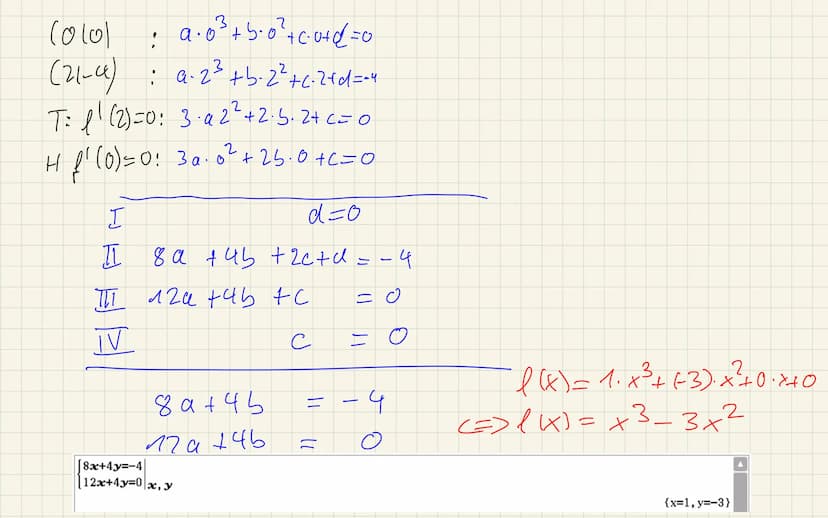 (0|0) : a·0³+b·0²+c·0+d=0
(2|-4) : a·2³+b·2²+c·2+d=-4
T: f'(2)=0: 3·a2²+2·b·2+c=0
H f'(0)=0: 3a·0²+2b·0+c=0
I d=0
II 8a+4b+2c+d=-4
III 12a+4b+c=0
IV c=0
8a+4b=-4
12a+4b=0
f(x)=1·x³+(-3)·x²+0·x+0
<=> f(x)=x³-3x²
{8x+4y=-4
12x+4y=0|x,y
{x=1,y=-3}